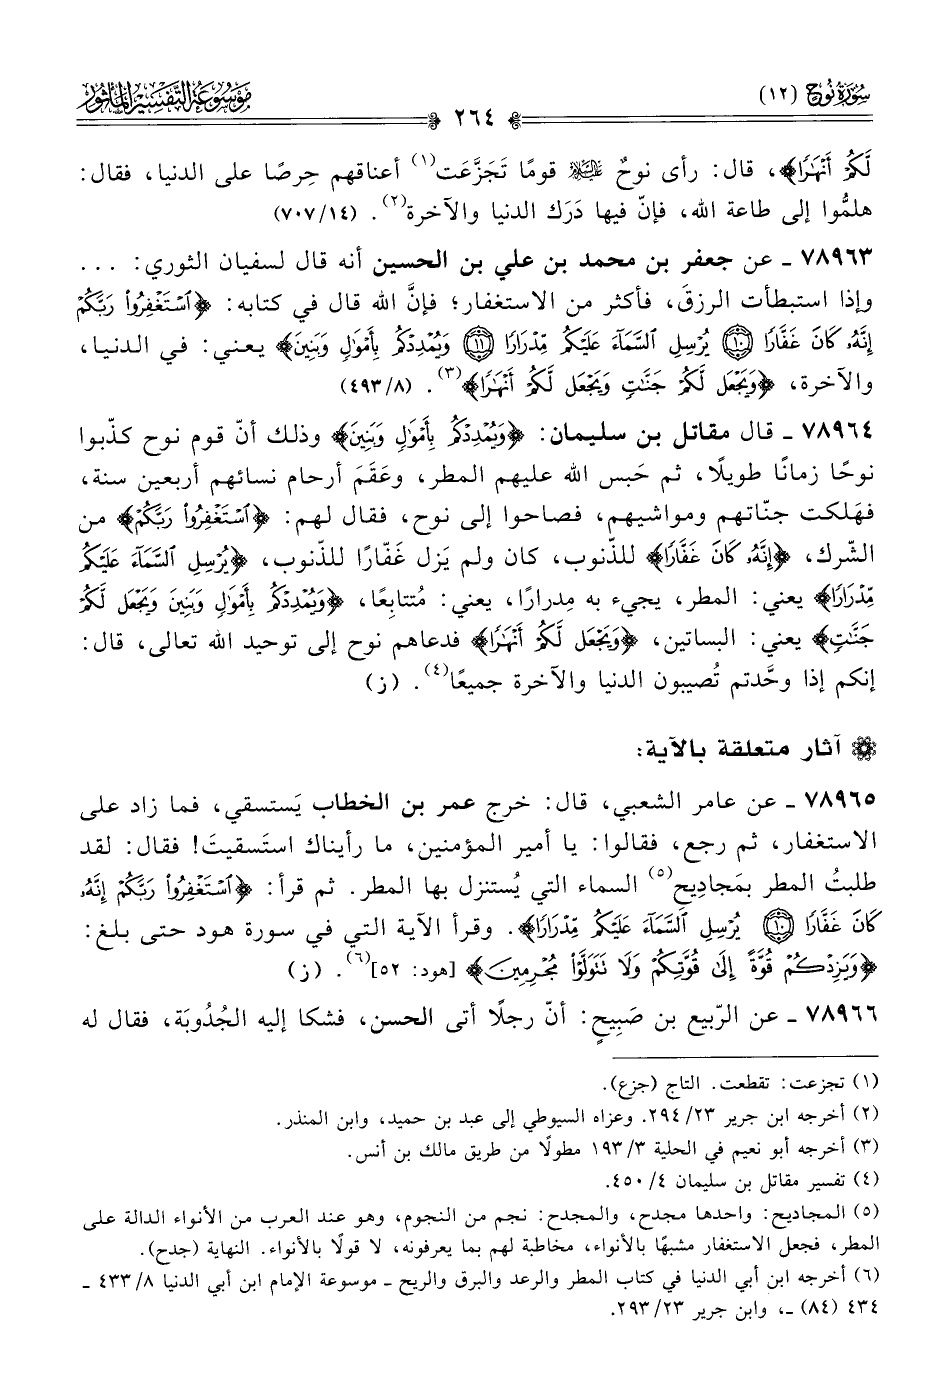 سُورَةُ نُوحٍ (١٢)
٢٦٤
مَوْسُوعَةُ التَّفْسِيرِ المَأْثُور
لَّكُمْ أَنْهَٰرًا﴾، قال: رأى نوحٌ ﷺ قومًا تَجَزَّعَت(١) أعناقهم حِرصًا على الدنيا، فقال:
هلمُّوا إلى طاعة الله، فإنّ فيها دَرَك الدنيا والآخرة(٢). (١٤/٧٠٧)
٧٨٩٦٣ ـ عن جعفر بن محمد بن علي بن الحسين أنه قال لسفيان الثوري: ...
وإذا استبطأت الرزقَ، فأكثر من الاستغفار؛ فإنَّ الله قال في كتابه: ﴿ٱسْتَغْفِرُواْ رَبَّكُمْ
إِنَّهُۥ كَانَ غَفَّارًا ۝١٠ يُرْسِلِ ٱلسَّمَآءَ عَلَيْكُم مِّدْرَارًا ۝١١ وَيُمْدِدْكُم بِأَمْوَٰلٍ وَبَنِينَ﴾ يعني: في الدنيا،
والآخرة، ﴿وَيَجْعَل لَّكُمْ جَنَّٰتٍ وَيَجْعَل لَّكُمْ أَنْهَٰرًا﴾(٣). (٨/٤٩٣)
٧٨٩٦٤ ـ قال مقاتل بن سليمان: ﴿وَيُمْدِدْكُم بِأَمْوَٰلٍ وَبَنِينَ﴾ وذلك أنّ قوم نوح كذّبوا
نوحًا زمانًا طويلًا، ثم حَبس الله عليهم المطر، وعَقَمَ أرحام نسائهم أربعين سنة،
فهَلكت جنّاتهم ومواشيهم، فصاحوا إلى نوح، فقال لهم: ﴿ٱسْتَغْفِرُواْ رَبَّكُمْ﴾ من
الشّرك، ﴿إِنَّهُۥ كَانَ غَفَّارًا﴾ للذّنوب، كان ولم يَزل غَفّارًا للذّنوب، ﴿يُرْسِلِ ٱلسَّمَآءَ عَلَيْكُم
مِّدْرَارًا﴾ يعني: المطر، يجيء به مِدرارًا، يعني: مُتتابعًا، ﴿وَيُمْدِدْكُم بِأَمْوَٰلٍ وَبَنِينَ وَيَجْعَل لَّكُمْ
جَنَّٰتٍ﴾ يعني: البساتين، ﴿وَيَجْعَل لَّكُمْ أَنْهَٰرًا﴾ فدعاهم نوح إلى توحيد الله تعالى، قال:
إنكم إذا وحَّدتم تُصيبون الدنيا والآخرة جميعًا(٤). (ز)
آثار متعلقة بالآية:
٧٨٩٦٥ ـ عن عامر الشعبي، قال: خرج عمر بن الخطاب يَستسقي، فما زاد على
الاستغفار، ثم رجع، فقالوا: يا أمير المؤمنين، ما رأيناك استَسقيتَ! فقال: لقد
طلبتُ المطر بمَجادِيح(٥) السماء التي يُستنزل بها المطر. ثم قرأ: ﴿ٱسْتَغْفِرُواْ رَبَّكُمْ إِنَّهُۥ
كَانَ غَفَّارًا ۝١٠ يُرْسِلِ ٱلسَّمَآءَ عَلَيْكُم مِّدْرَارًا﴾. وقرأ الآية التي في سورة هود حتى بلغ:
﴿وَيَزِدْكُمْ قُوَّةً إِلَىٰ قُوَّتِكُمْ وَلَا تَتَوَلَّوْاْ مُجْرِمِينَ﴾ [هود: ٥٢](٦). (ز)
٧٨٩٦٦ ـ عن الرّبيع بن صَبِيحٍ: أنّ رجلًا أتى الحسن، فشكا إليه الجُدُوبَة، فقال له
(١) تجزعت: تقطعت. التاج (جزع).
(٢) أخرجه ابن جرير ٢٣/٢٩٤. وعزاه السيوطي إلى عبد بن حميد، وابن المنذر.
(٣) أخرجه أبو نعيم في الحلية ٣/١٩٣ مطولًا من طريق مالك بن أنس.
(٤) تفسير مقاتل بن سليمان ٤/٤٥٠.
(٥) المجاديح: واحدها مجدح، والمجدح: نجم من النجوم، وهو عند العرب من الأنواء الدالة على
المطر، فجعل الاستغفار مشبهًا بالأنواء، مخاطبة لهم بما يعرفونه، لا قولًا بالأنواء. النهاية (جدح).
(٦) أخرجه ابن أبي الدنيا في كتاب المطر والرعد والبرق والريح ـ موسوعة الإمام ابن أبي الدنيا ٨/٤٣٣ ـ
٤٣٤ (٨٤) ـ، وابن جرير ٢٣/٢٩٣.